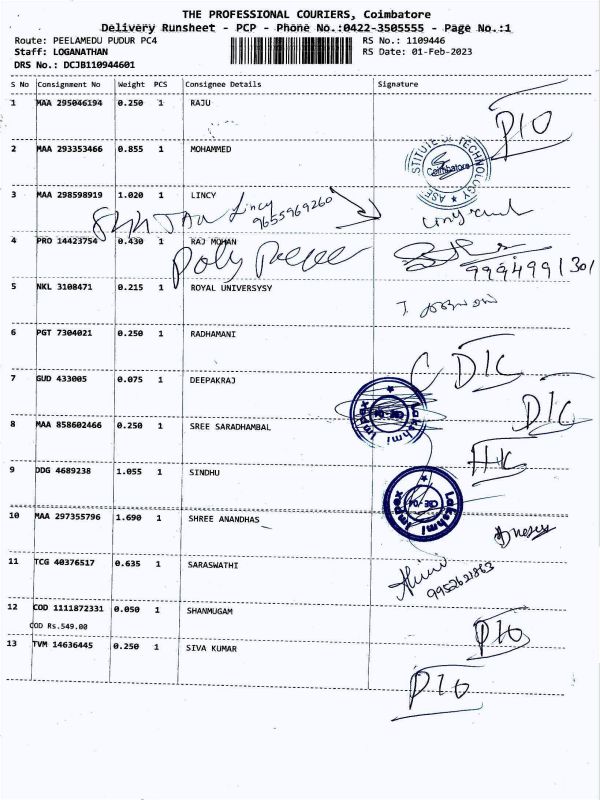 THE PROFESSIONAL COURIERS, Coimbatore
Delivery Runsheet - PCP - Phone No.:0422-3505555 - Page No.:1
Route: PEELAMEDU PUDUR PC4 RS No.: 1109446
Staff: LOGANATHAN RS Date: 01-Feb-2023
DRS No.: DCJB110944601
S No Consignment No Weight PCS Consignee Details Signature
1 MAA 295046194 0.250 1 RAJU
2 MAA 293353466 0.855 1 MOHAMMED
STITUTE OF TECHNOLOGY ★ ASE
Coimbatore
3 MAA 298598919 1.020 1 LINCY
Lincy
9655969260
4 PRO 14423754 0.430 1 RAJ MOHAN
Poly
9994991301
5 NKL 3108471 0.215 1 ROYAL UNIVERSYSY
6 PGT 7304021 0.250 1 RADHAMANI
7 GUD 433005 0.075 1 DEEPAKRAJ
Lakshmi Impex
CBE-04
8 MAA 858602466 0.250 1 SREE SARADHAMBAL
9 DDG 4689238 1.055 1 SINDHU
Lakshmi Impex
CBE-04
10 MAA 297355796 1.690 1 SHREE ANANDHAS
11 TCG 40376517 0.635 1 SARASWATHI
9952621863
12 COD 1111872331 0.050 1 SHANMUGAM
COD Rs.549.00
13 TVM 14636445 0.250 1 SIVA KUMAR